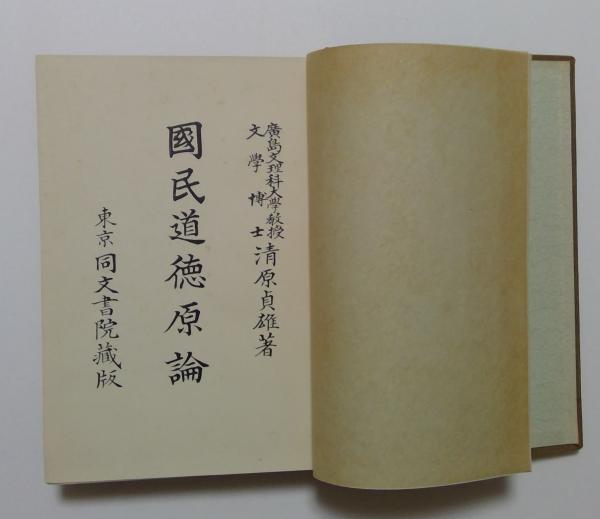 廣島文理科大學教授
文學博士 清原貞雄著
國民道徳原論
東京 同文書院藏版